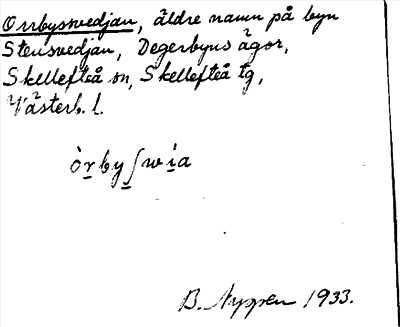 Orrbyssvedjan, äldre namn på byn
Stensvedjan, Degerbyns ägor,
Skellefteå sn, Skellefteå tg,
Västerb. l.
òrbyʃwía
B. Nyppen 1933.